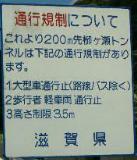 通行規制について
これより200m先柳ヶ瀬トン
ネルは下記の通行規制があり
ます。
1大型車通行止(路線バス除く)
2歩行者 軽車両 通行止
3高さ制限3.5m
滋賀県